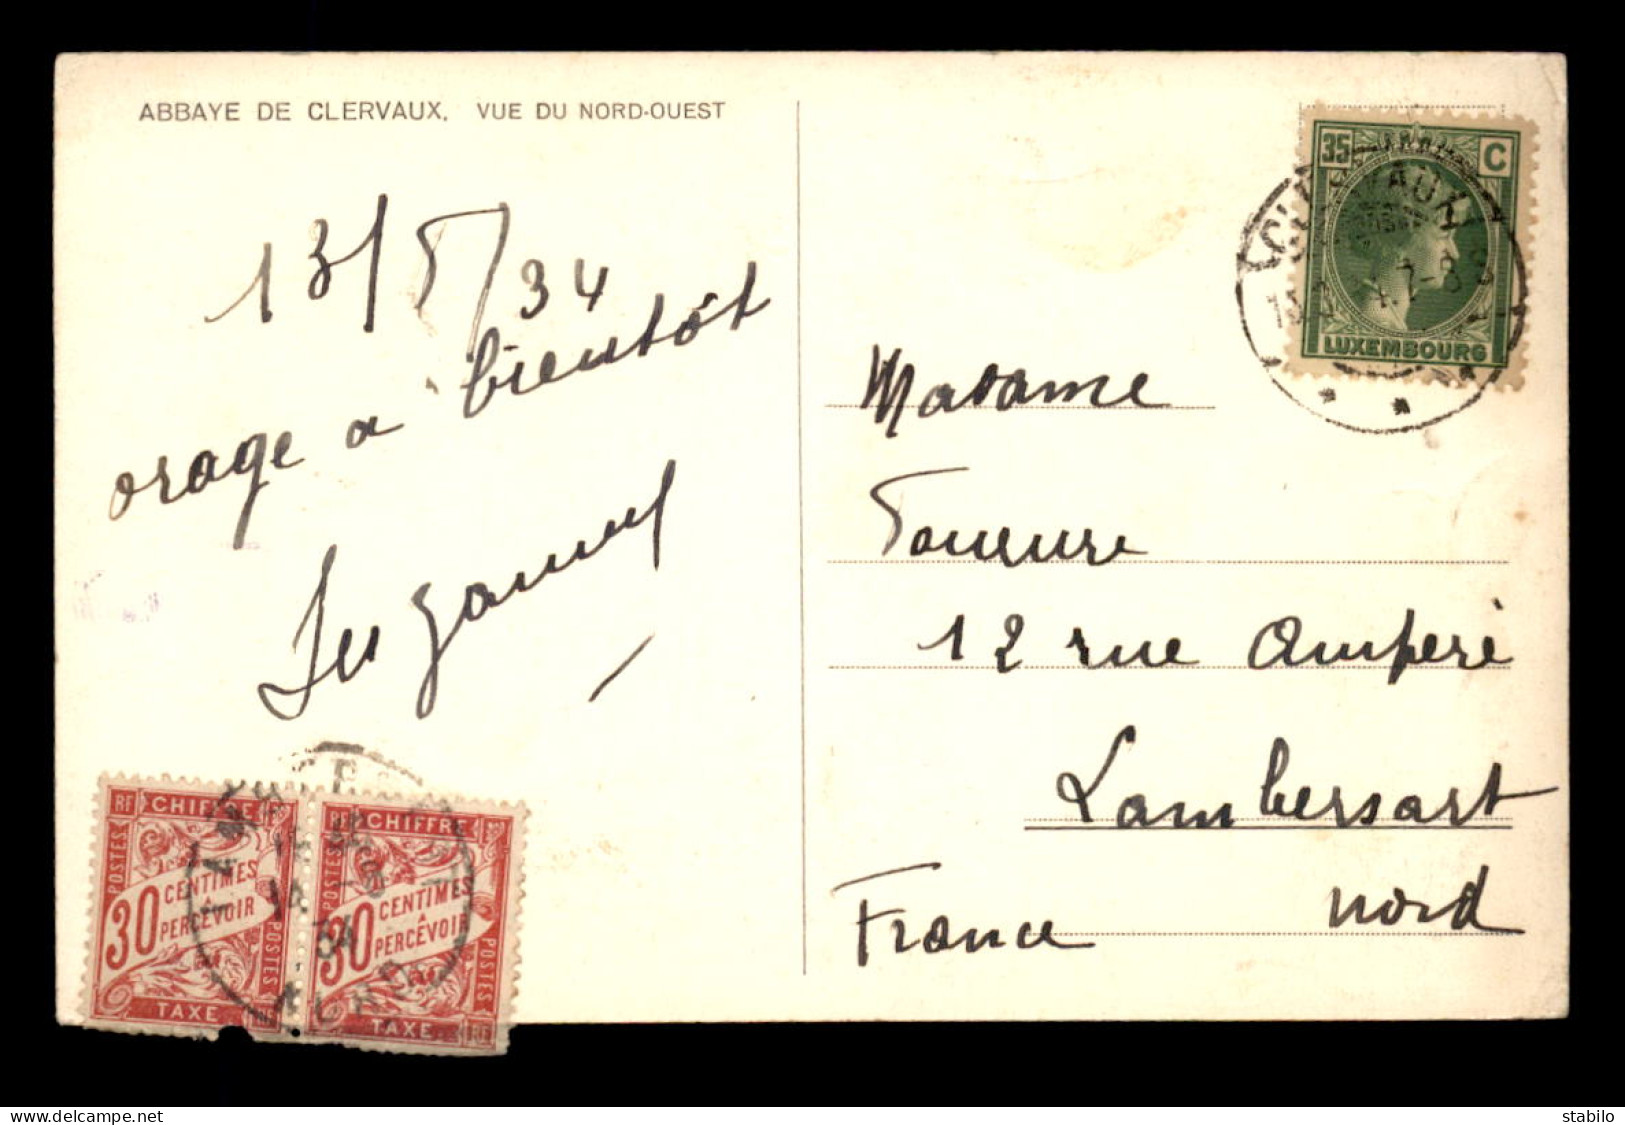 ABBAYE DE CLERVAUX, VUE DU NORD-OUEST
13/5/34
orage a bientôt
35 C
LUXEMBOURG
CLERVAUX
Madame
12 rue Ampère
Lambersart
nord
France
RF CHIFFRE
POSTES
30 CENTIMES
A
PERCEVOIR
POSTES
TAXE
RF CHIFFRE
POSTES
30 CENTIMES
A
PERCEVOIR
POSTES
TAXE RF
NORD
www.delcampe.net
stabilo